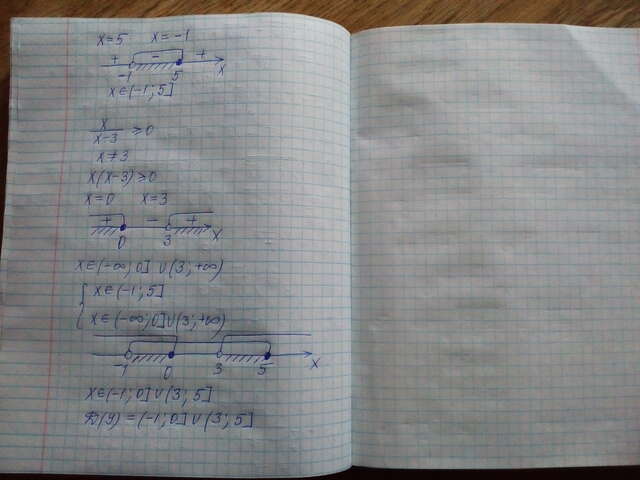 x=5 x=-1
+ - +
-1 5 x
x∈(-1; 5]
x/(x-3) ≥ 0
x≠3
x(x-3) ≥ 0
x=0 x=3
+ - +
0 3 x
x∈(-∞; 0] ∪ (3; +∞)
{ x∈(-1; 5]
x∈(-∞; 0] ∪ (3; +∞)
-1 0 3 5 x
x∈(-1; 0] ∪ (3; 5]
D(y) = (-1; 0] ∪ (3; 5]